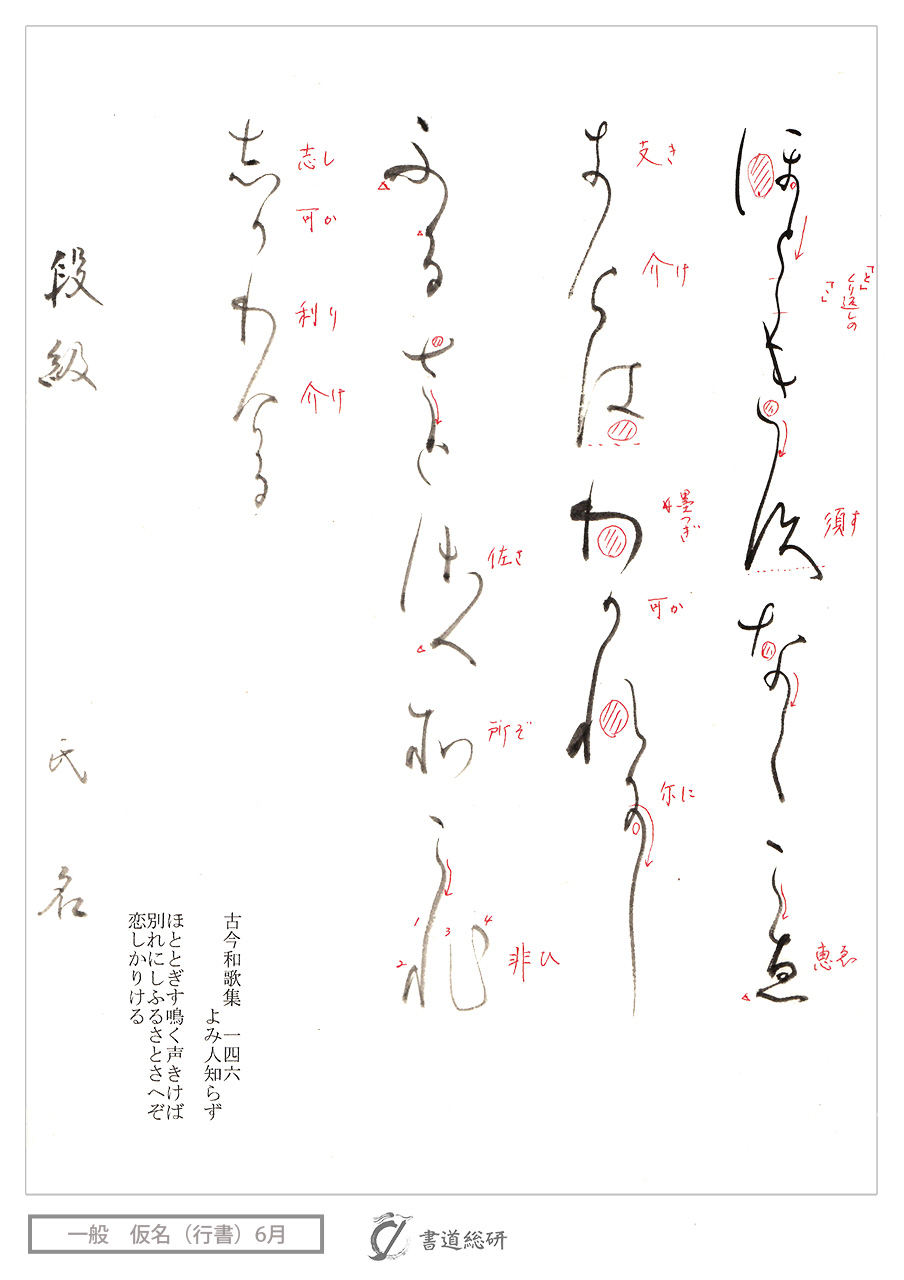 ほとゝぎ須なくこ恵
「と」
くり返しの
「ゝ」
須す
恵ゑ
支介はわ可れ尓し
支き
介け
墨つぎ
可か
尓に
ふるさと佐へ所こ非
佐さ
所ぞ
1
2
3
4
非ひ
志可利介る
志し
可か
利り
介け
段級　氏名
古今和歌集　一四六
よみ人知らず
ほととぎす鳴く声きけば
別れにしふるさとさへぞ
恋しかりける
一般　仮名（行書）6月
書道総研